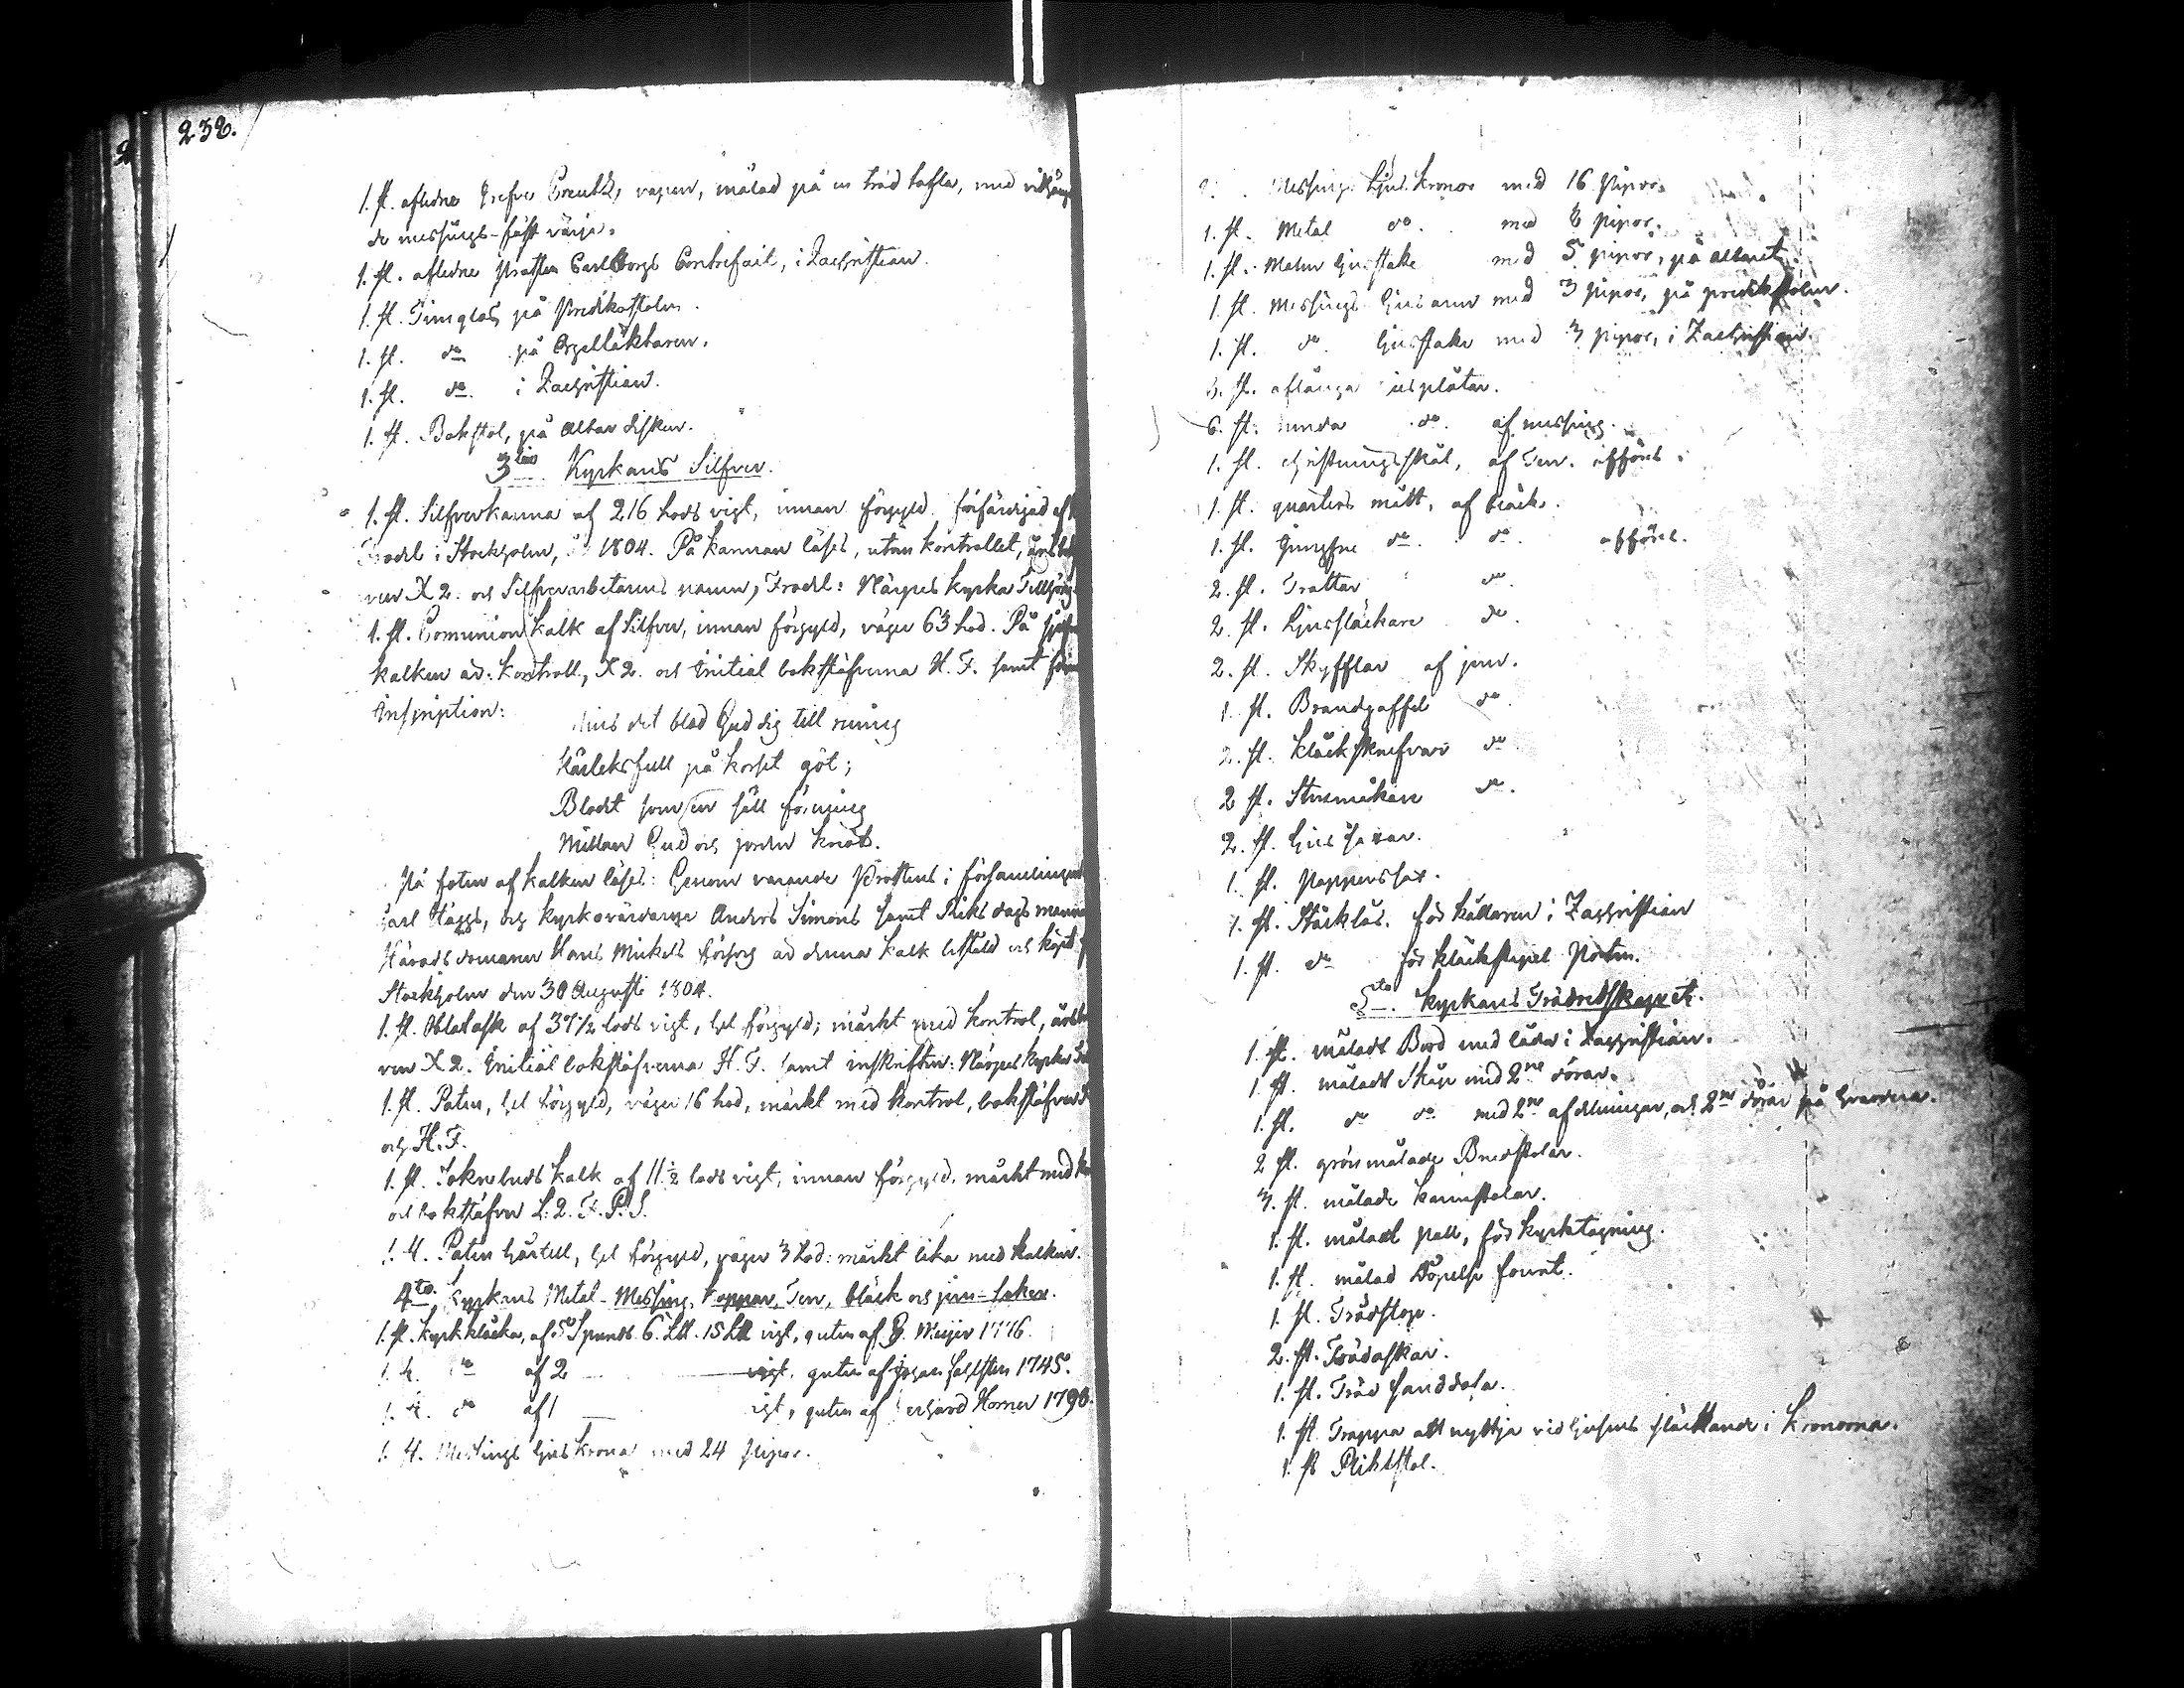 232.
1. st. afledne Grefve Creutz's vapen, målad på en träd tafla, med vidhängan
de messings-fäst värja.
1. st. afledne Prosten Carlborgs Contrefait, i Sachristian.
1. st. Timglas, på Predikostolen.
1. st. do på Orgelläktaren.
1. st. do i Sachristian.
1. st. Bokstol, på Altar disken.
3tio Kyrkans Silfver.
1. st. Silfverkanna af 216 lods vigt, innan förgyld. förfärdigad af
i Stockholm, 1804. På kannan läses, utan kontrollet,
ver X 2. och Silfverarbetarens namn, Närpes Kyrka Tillhörig
1. st. Comunion kalk af Silfver, innan förgyld, väger 63 lod. På sjelfva
kalken är: kontroll, X 2. och Initial bokstäfverna H. F. samt
Inscription:
det blod Gud dig till
Kärleksfull på korset göt;
Blodet som en säll förening
Mellan Gud och jorden knöt.
På foten af kalken läses: Genom varande Prostens i församlingen
Carl Häggs, och kyrkovärdarne Anders Simons samt Riksdagsmannen
Häradsdomaren Hans Mickels försorg är denna kalk beställd och köpt
Stockholm den 30 Augusti 1804.
1. st. Oblatask af 37 1/2 lods vigt, hel förgyld; märkt med kontrol,
ver X 2. Initial bokstäfverna H. F. samt inskriften: Närpes kyrka
1. st. Paten, hel förgyld, väger 16 lod, märkt med kontrol, bokstäfver
och H. F.
1. st. Soknebuds kalk af 11 1/2 lods vigt, innan förgyld, märkt med
och bokstäfver L. 2. F. P. S.
1. st. Paten härtill, hel förgyld, väger 3 Lod: märkt lika med kalken.
4to. Kyrkans Metal- Messing, Koppar, Ten, bläck och jern-saker.
1. st. kyrkklåcka, af 5 Spunds 6. LU. 15 LU vigt, guten af G. Meijer 1776.
1. st. do af 2 vigt, guten af Johan 1745.
1. st. do af 1 vigt, guten af Gerhard Horner 1790.
1. st. Messings ljus krona med 24 pipor.
2. Messings Ljus kronor med 16 pipor.
1. st. Metal do. med 8 pipor.
1. st. Malm ljusstake med 5 pipor, på altaret.
1. st. Messings ljus arm med 3 pipor, på predikstolen.
1. st. do. ljusstake med 3 pipor, i Sachristian.
st. aflånga ljusplåtar.
6. st. runda do. af messing.
1. st. Christningsskål, af Ten. afförd.
1. st. quarters mått, af bläck.
1. st. Jungfru do. do. afföres.
2. st. Trattar do.
2. st. Ljussläckare do.
2. st. Skyfflar af jern.
1. st. Brandgaffel do.
2. st. do
2 st. do.
2. st. Ljus saxar.
1. st. Papperssax.
1. st. Stäcklås. för källaren i Sachristian
1. st. do för kläckstapel Porten.
5to. Kyrkans Trädredskaper.
1. st. måladt Bord med låda i Sachristian.
1. st. måladt Skåp med 2ne dörar.
1. st. do do med 2ne afdelningar, och 2ne dörar på
2 st. grön målade Brudstolar.
3. st. målade karmstolar.
1. st. målad pall, för kyrktagning.
1. st. målad Döpelse
1. st. Trädstop.
2. st. Trädaskar.
1. st. Träd sanddosa.
1. st. Trappa att nyttja vid ljusens släckande i Kronorna.
1. st Pliktstol.